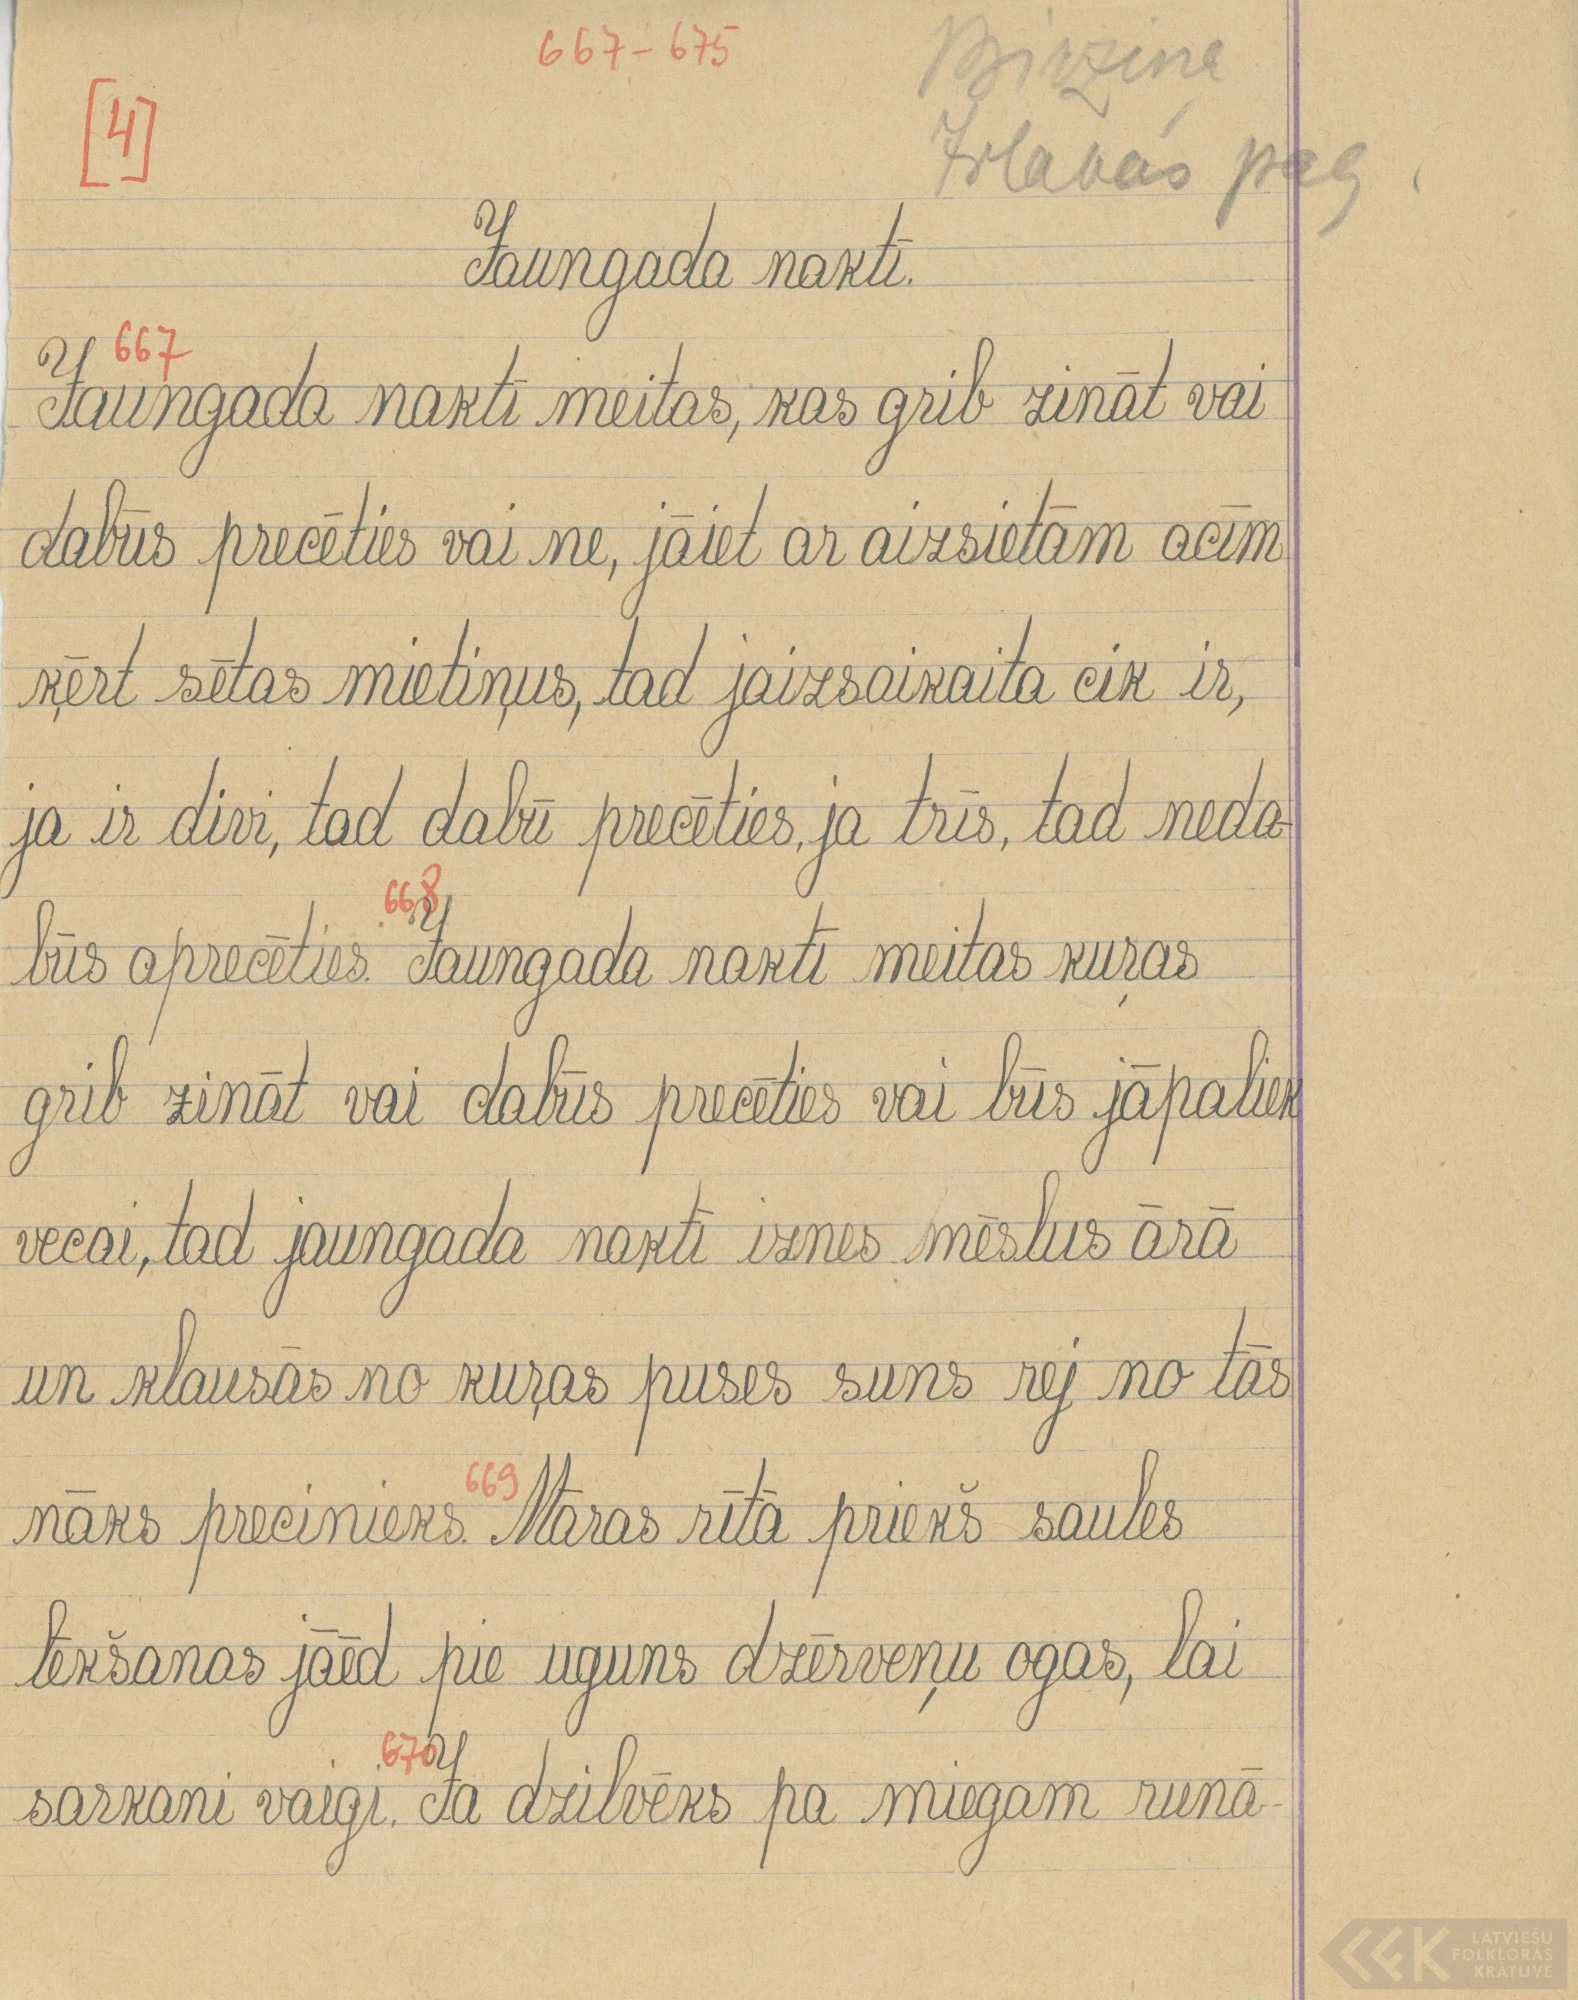 667-675
[4]
Birzina
Irlavas pag.
Jaungada naktī.
667
Jaungada naktī meitas, kas grib zināt vai
dabūs precēties vai ne, jāiet ar aizsietām acīm
ķērt sētas mietiņus, tad jaizsaikaita cik ir,
ja ir divi, tad dabū precēties, ja trīs, tad neda-
668
būs aprecēties. Jaungada naktī meitas kuŗas
grib zināt vai dabūs precēties vai būs jāpaliek
vecai, tad jaungada naktī iznes mēslus ārā
un klausās no kuŗas puses suns rej no tās
669
nāks precinieks. Māras rītā priekš saules
lēkšanas jāēd pie uguns dzērveņu ogas, lai
670
sarkani vaigi. Ja dzilvēks pa miegam runā-
LATVIEŠU
FOLKLORAS
KRĀTUVE